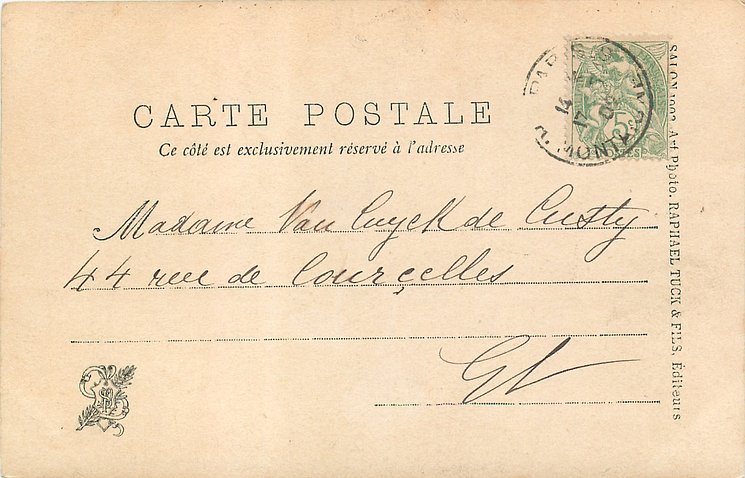 CARTE POSTALE
Ce côté est exclusivement réservé à l'adresse
Madame Van Cuyck de
44 rue de Courçelles
SALON 1903. Art Photo. RAPHAEL TUCK & FILS, Editeurs
PARIS
5